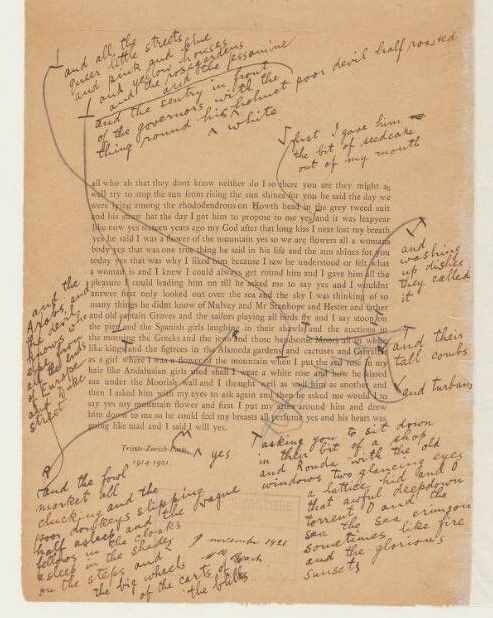 and all the
queer little streets
and pink and blue
and yellow houses
and the rosegardens
and the jessamine
and the sentry in front
of the governors with the
thing round his helmet poor devil half roasted
white
first I gave him
the bit of seedcake
out of my mouth
all who ah that they dont know neither do I so there you are they might as
well try to stop the sun from rising the sun shines for you he said the day we
were lying among the rhododendrons on Howth head in the grey tweed suit
and his straw hat the day I got him to propose to me yes and it was leapyear
like now yes sixteen years ago my God after that long kiss I near lost my breath
yes he said I was a flower of the mountain yes so we are flowers all a woman
body yes that was one true thing he said in his life and the sun shines for you
today yes that was why I liked him because I saw he understood or felt what
a woman is and I knew I could always get round him and I gave him all the
pleasure I could leading him on till he asked me to say yes and I wouldnt
answer first only looked out over the sea and the sky I was thinking of so
many things he didnt know of Mulvey and Mr Stanhope and Hester and father
and old captain Groves and the sailors playing all birds fly and I say stoop on
the pier and the Spanish girls laughing in their shawls and the auctions in
the morning the Greeks and the jews and those handsome Moors all in white
like kings and the figtrees in the Alameda gardens and cactuses and Gibraltar
as a girl where I was a flower of the mountain when I put the red rose in my
hair like Andalusian girls used shall I wear a white rose and how he kissed
me under the Moorish wall and I thought well as well him as another and
then I asked him with my eyes to ask again and he asked me would I to
say yes my mountain flower and first I put my arms around him and drew
him down to me so he could feel my breasts all perfume yes and his heart was
going like mad and I said I will yes.
Trieste-Zurich-Paris,
1914-1921.
yes
and
washing
up dishes
they called
it
and their
tall combs
and turbans
and the
Arabs and
the devil
knows who
else from
all the ends
of Europe
and Duke
street
and the fowl
market all
clucking and the
poor donkeys slipping
half asleep and the vague
fellows in the cloaks
asleep in the shades
on the steps and
the big wheels
of the carts of
the bulls
asking you to sit down
in their bit of a shop
and Ronda with the old
windows two glancing eyes
a lattice hid and O
that awful deepdown
torrent O and the
sea the sea crimson
sometimes like fire
and the glorious
sunsets